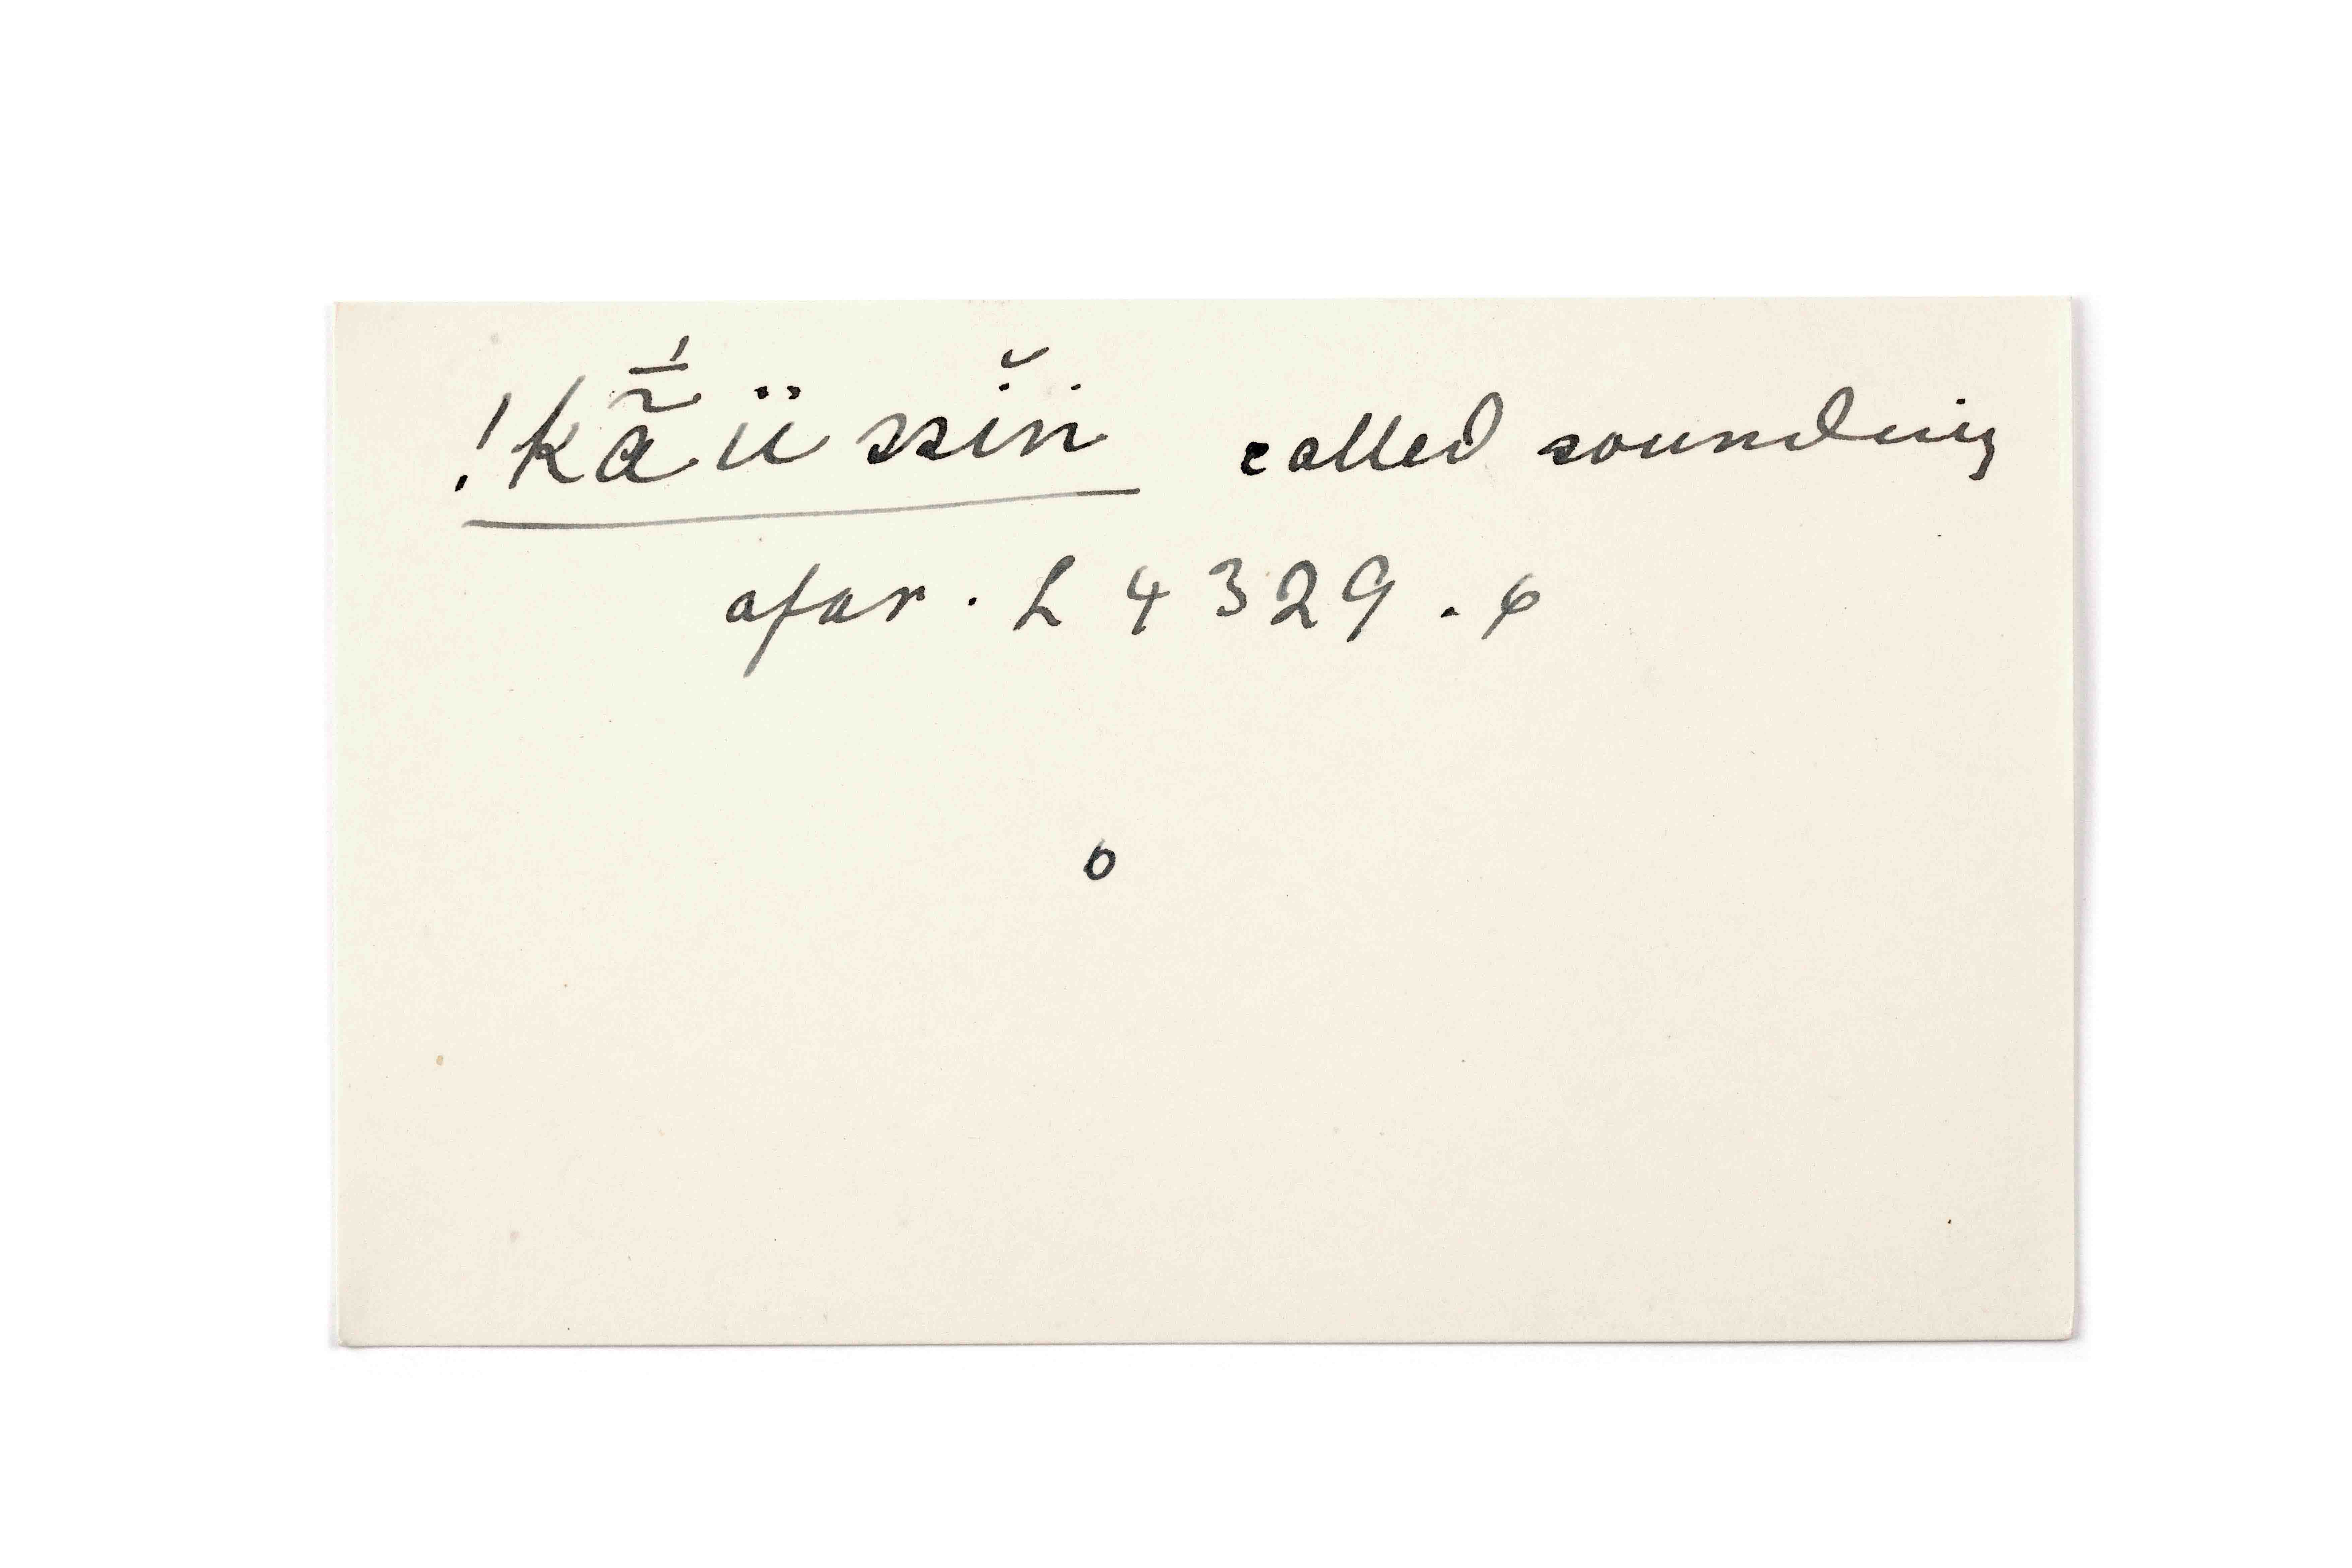 !kã̄́üssĭn called sounding
afar. L 4329.6
o